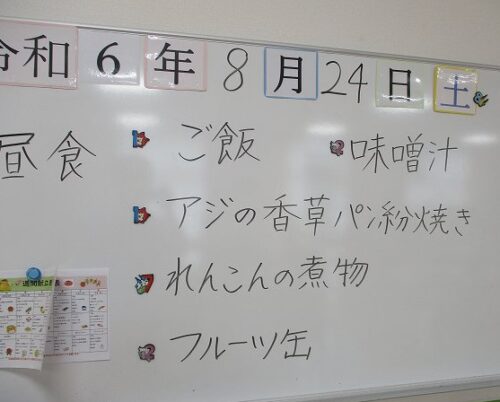 令和6年8月24日土
昼食
ご飯 味噌汁
アジの香草パン粉焼き
れんこんの煮物
フルーツ缶